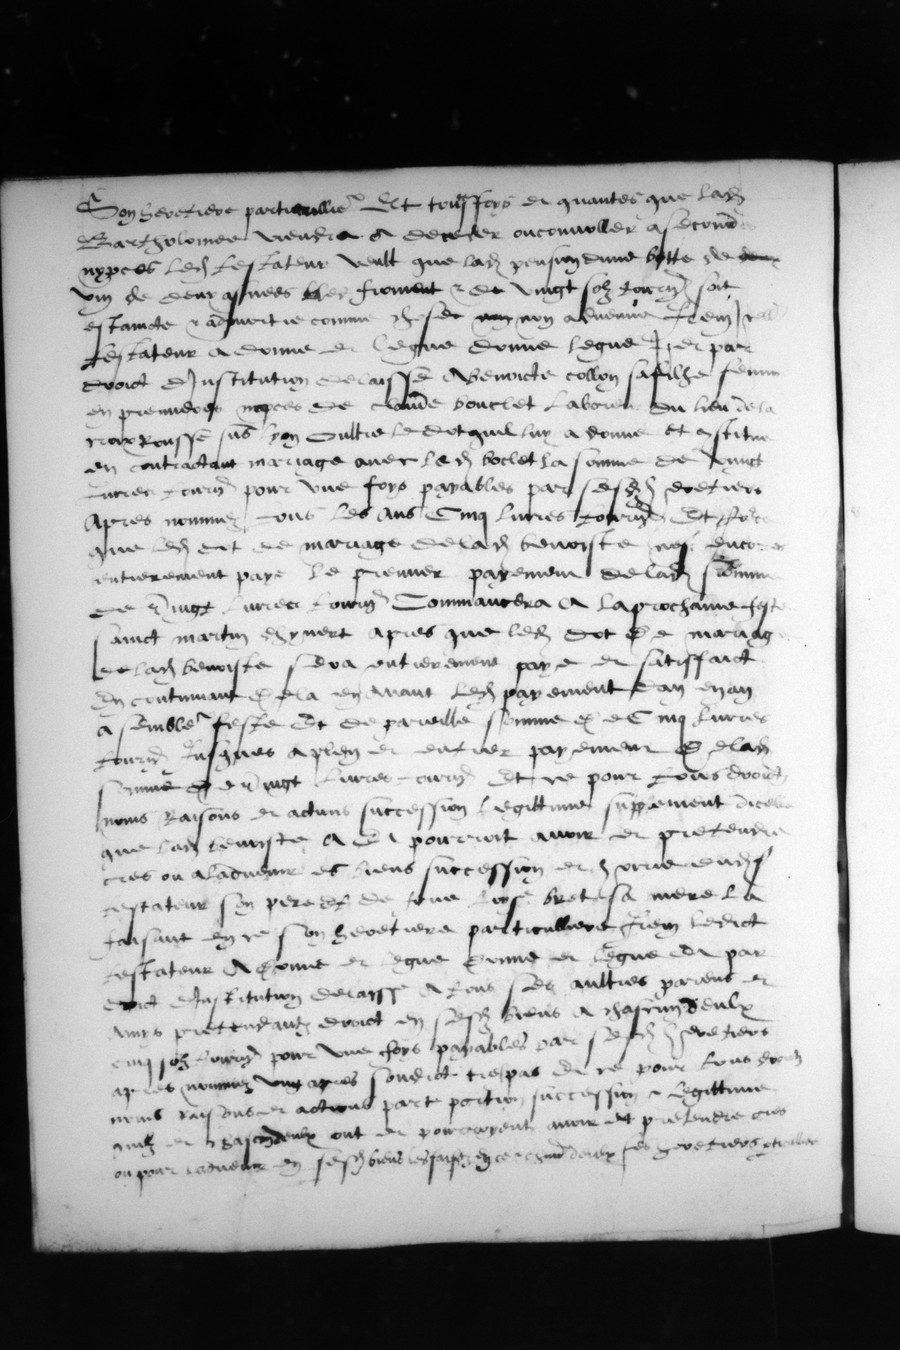 Son heretiere particulliere Et touteffoys et quantes que lad
Bartholomee viendra a deceder ou convoller a secondes
nopces led testateur veult que lad pension dune botte de
vin de deux asnees bled froment et de vingt solz tourn soit
estaincte et admortie comme chose non advenue Item led
testateur a donne et legue donne legue et par
droict dinstitution delaisse a Benoicte collon sa filhe femme
en premieres nopces de claude bouclet laboreur du lieu de la
croix Rousse sus lyon oultre le dot quil luy a donne et constitue
en contractant mariage avec led boclet la somme de vingt
livres tourn pour une foys payables par sesd heretiers
apres nommez tous les ans Cinq livres tourn Et
que led dot de mariage de lad benoiste nest encores
entierement paye le premier payement de lad somme
de vingt livres tourn Commancera a la prochaine feste
sainct martin dhyvert apres que led dot de mariage
de lad benoiste sera entierement paye et satisfaict
En continuant de la en avant led payement dan en an
a semble feste et de pareille somme de Cinq livres
tourn Jusques a plein et entier payement de lad
somme de vingt livres tourn Et ce pour tous droictz
noms Raisons et actions succession legittime supplement dicelle
que lad benoiste a et pourroit avoir et pretendre
ores ou a ladvenir es biens succession et hoirie dud
testateur son pere et de feue loyse bret sa mere la
faisant en ce son heretiere particulliere Item ledict
testateur a donne et legue donne et legue et par
droict dinstitution delaisse a tous ses aultres parens et
amys pretendantz droict en sesd biens a chascun deulx
cinq solz tourn pour une foys payables par sesd heretiers
apres nommez ung apres sondict trespas Et ce pour tous droictz
noms raisons et actions part portion succession et legittime
quilz et chascun deulx ont et pourroyent avoir et pretendre ores
ou pour ladvenir en sesd biens les faisant en ce chascun deulx ses heretiers particulliers